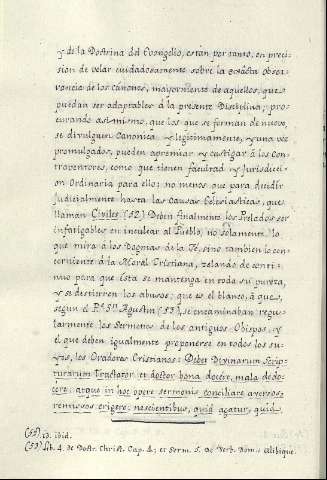 y de la Doctrina del Evangelio, estan por tanto, en preci-
sion de velar cuidadosamente sobre la exacta obser-
vancia de los canones, mayormente de aquellos, que
puedan ser adaptables à la presente Disciplina; pro-
curando asimismo, que los que se forman de nuevo,
se divulguen Canonica, y legitimamente, y una vez
promulgados, puedan apremiar y castigar à los Con-
traventores, como que tienen facultad y Jurisdicci-
on Ordinaria para ello; no menos que para decidir
judicialmente hasta las Causas Eclesiasticas, que
llaman Civiles. (52) Deben finalmente los Prelados ser
infatigables en inculcar al Pueblo, no solamente lo
que mira à los Dogmas de la Fé, sino tambien lo con-
cerniente à la Moral Cristiana, zelando de conti-
nuo para que ésta se mantenga en toda su pureza,
y se destierren los abusos; que es el blanco, à que,
segun el P. Sⁿ. Agustin (53), se encaminaban regu-
larmente los Sermones de los antiguos Obispos, y
el que deben igualmente proponerse en todos los su-
yos, los Oradores Cristianos: Debet Divinarum Scrip-
turarum Tractator et doctor bona docere, mala dedo-
cere: atque in hoc opere sermonis conciliare aversos,
remissos erigere; nescientibus, quid agatur, quid
(52) Id. ibid.
(53) Lib. 4. de Doctr. Christ. Cap. 4; et Serm. 5. de Verb. Dom. alibique.